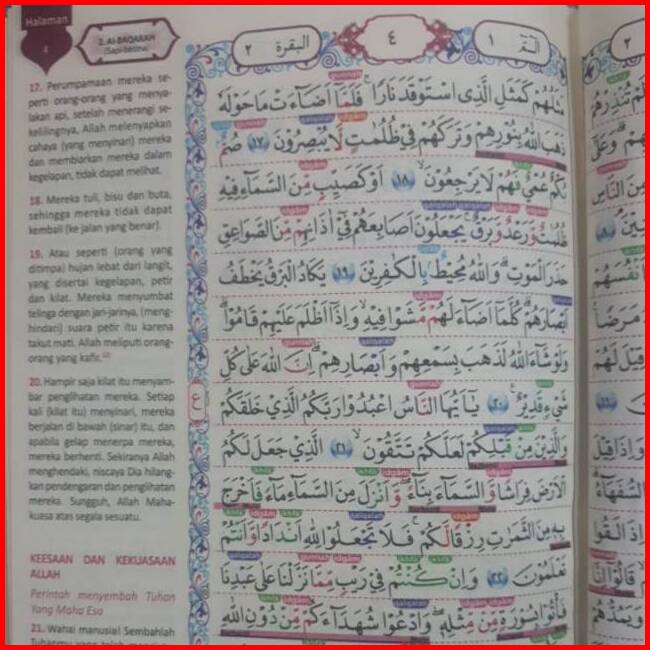 Halaman
4
2. AL-BAQARAH
(Sapi betina)
البقرة ٢
٤
الۤمّۤ ١
17. Perumpamaan mereka se-
perti orang-orang yang menya-
lakan api, setelah menerangi se-
kelilingnya, Allah melenyapkan
cahaya (yang menyinari) mereka
dan membiarkan mereka dalam
kegelapan, tidak dapat melihat.
18. Mereka tuli, bisu dan buta,
sehingga mereka tidak dapat
kembali (ke jalan yang benar).
19. Atau seperti (orang yang
ditimpa) hujan lebat dari langit,
yang disertai kegelapan, petir
dan kilat. Mereka menyumbat
telinga dengan jari-jarinya, (meng-
hindari) suara petir itu karena
takut mati. Allah meliputi orang-
orang yang kafir.
20. Hampir saja kilat itu menyam-
bar penglihatan mereka. Setiap
kali (kilat itu) menyinari, mereka
berjalan di bawah (sinar) itu, dan
apabila gelap menerpa mereka,
mereka berhenti. Sekiranya Allah
menghendaki, niscaya Dia hilang-
kan pendengaran dan penglihatan
mereka. Sungguh, Allah Maha-
kuasa atas segala sesuatu.
KEESAAN DAN KEKUASAAN
ALLAH
Perintah menyembah Tuhan
Yang Maha Esa
21. Wahai manusia! Sembahlah
مَثَلُهُمْ كَمَثَلِ الَّذِى اسْتَوْقَدَ نَارًا ۚ فَلَمَّآ اَضَاۤءَتْ مَا حَوْلَهٗ
ذَهَبَ اللّٰهُ بِنُوْرِهِمْ وَتَرَكَهُمْ فِيْ ظُلُمٰتٍ لَّا يُبْصِرُوْنَ ﴿١٧﴾ صُمٌّ ۢ
بُكْمٌ عُمْيٌ فَهُمْ لَا يَرْجِعُوْنَ ۙ ﴿١٨﴾ اَوْ كَصَيِّبٍ مِّنَ السَّمَاۤءِ فِيْهِ
ظُلُمٰتٌ وَّرَعْدٌ وَّبَرْقٌ ۚ يَجْعَلُوْنَ اَصَابِعَهُمْ فِيْٓ اٰذَانِهِمْ مِّنَ الصَّوَاعِقِ
حَذَرَ الْمَوْتِ ۗ وَاللّٰهُ مُحِيْطٌ ۢ بِالْكٰفِرِيْنَ ﴿١٩﴾ يَكَادُ الْبَرْقُ يَخْطَفُ
اَبْصَارَهُمْ ۗ كُلَّمَآ اَضَاۤءَ لَهُمْ مَّشَوْا فِيْهِ ۙ وَاِذَآ اَظْلَمَ عَلَيْهِمْ قَامُوْا ۗ
وَلَوْ شَاۤءَ اللّٰهُ لَذَهَبَ بِسَمْعِهِمْ وَاَبْصَارِهِمْ ۗ اِنَّ اللّٰهَ عَلٰى كُلِّ
شَيْءٍ قَدِيْرٌ ࣖ ﴿٢٠﴾ يٰٓاَيُّهَا النَّاسُ اعْبُدُوْا رَبَّكُمُ الَّذِيْ خَلَقَكُمْ
وَالَّذِيْنَ مِنْ قَبْلِكُمْ لَعَلَّكُمْ تَتَّقُوْنَ ۙ ﴿٢١﴾ الَّذِيْ جَعَلَ لَكُمُ
الْاَرْضَ فِرَاشًا وَّالسَّمَاۤءَ بِنَاۤءً ۖ وَّاَنْزَلَ مِنَ السَّمَاۤءِ مَاۤءً فَاَخْرَجَ
بِهٖ مِنَ الثَّمَرٰتِ رِزْقًا لَّكُمْ ۚ فَلَا تَجْعَلُوْا لِلّٰهِ اَنْدَادًا وَّاَنْتُمْ
تَعْلَمُوْنَ ﴿٢٢﴾ وَاِنْ كُنْتُمْ فِيْ رَيْبٍ مِّمَّا نَزَّلْنَا عَلٰى عَبْدِنَا
فَأْتُوْا بِسُوْرَةٍ مِّنْ مِّثْلِهٖ ۖ وَادْعُوْا شُهَدَاۤءَكُمْ مِّنْ دُوْنِ اللّٰهِ
ع